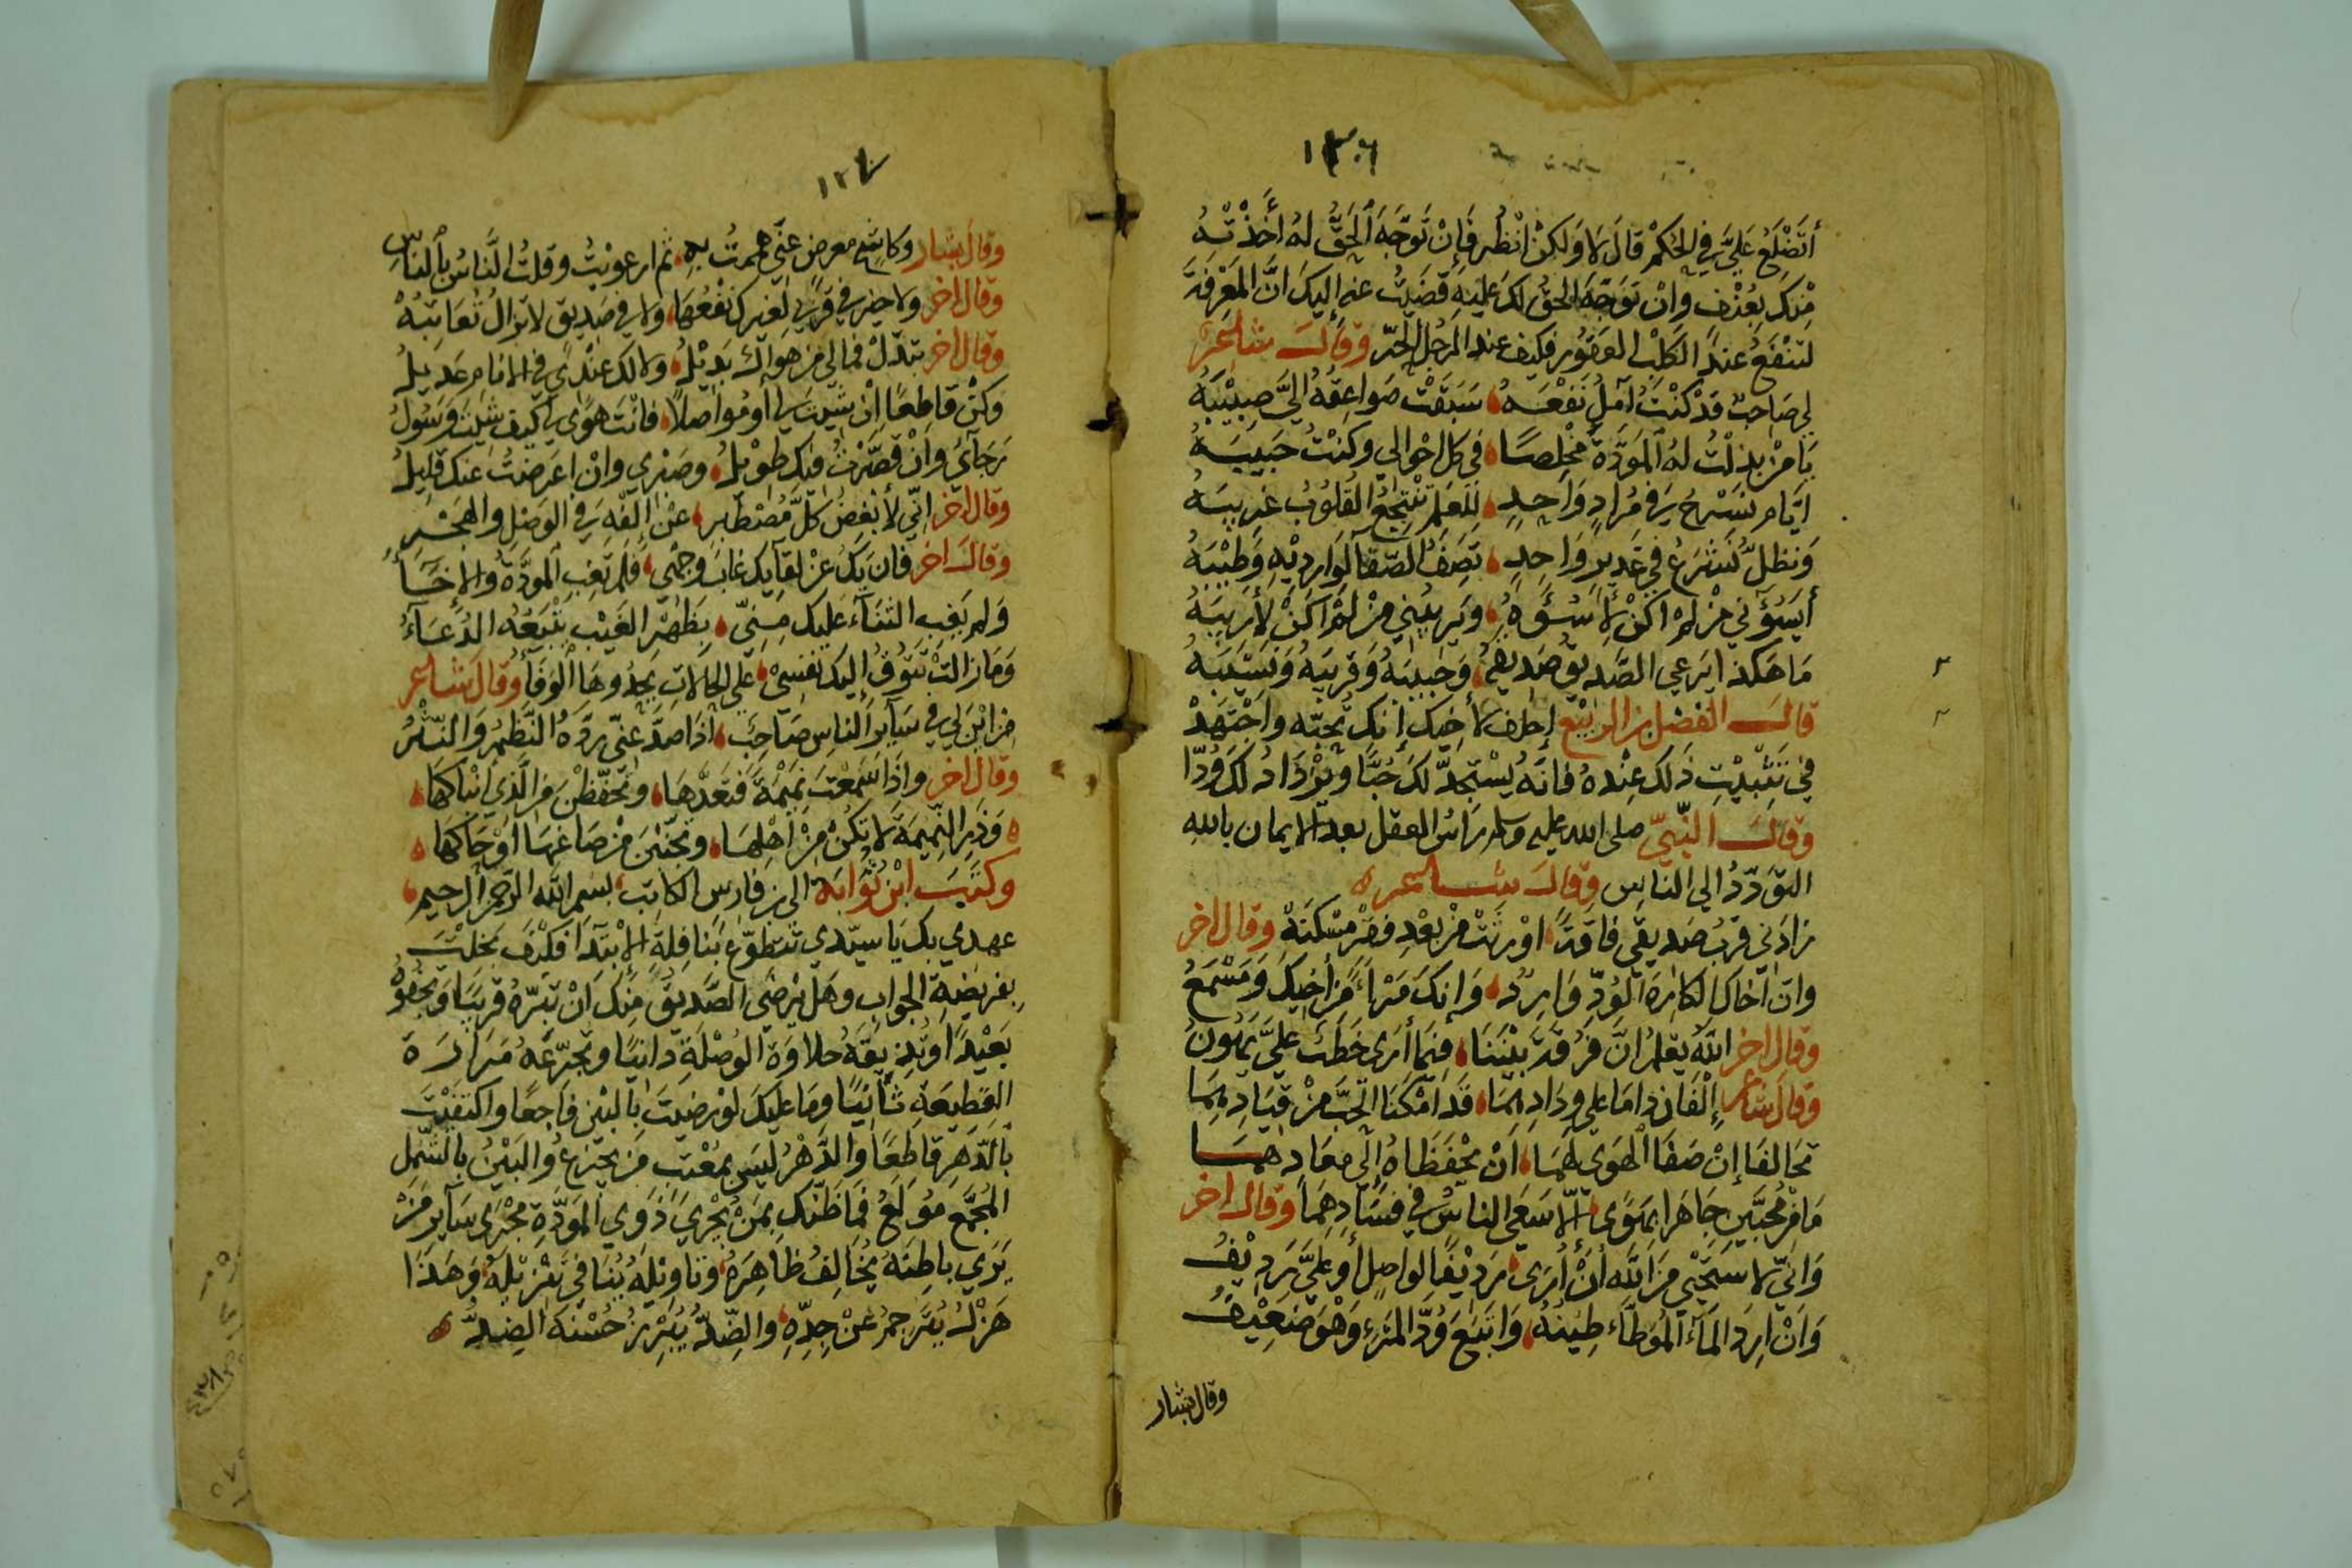 ١٣٠٦
أَتَضْلَعُ عَلَيَّ فِي الحُكْمِ قالَ لا وَلكِنْ انْظُر فَإنْ تَوَجَّهَ الحَقُّ لهُ أَخَذْتُهُ
مِنْكَ بِعُنْفٍ وإنْ تَوَجَّهَ الحقُّ لكَ عليْهِ قَضَيتُ عنه إليكَ انَّ المَعْرِفَةَ
لتنْفَعُ عندَ الكَلْبِ العَقُورِ فكيف عند الرجُل الحُرّ وقالَ شاعر
لي صَاحبٌ قدْ كنْتُ آمُلُ نَفْعَهُ سَبَقَتْ صَواعِقُهُ إليَّ صَبِيْبَهُ
يَا مَنْ بذلْتُ لهُ المَوَدّةَ مُخْلِصًا في كل احْوالي وكنْتُ حَبِيبَهُ
ايَّام نَسْرحُ في مُرَادٍ وَاحِدٍ لِلعِلم تنْتجعُ القُلُوبُ غرِيبَهُ
وَنظلُّ نَشْرَعُ في غَديرٍ وَاحِدٍ تَصِفُ الصّفا لوَارِديْهِ وَطِيْبَهُ
أيَسُؤُني مَنْ لمْ اكنْ لأَسُؤَهُ وَيريبُني مَنْ لمْ اكَنْ لأرِيبَهُ
مَا هَكذا يَرعى الصَّديقُ صَديقهُ وَحَبِيبَهُ وَقرِيبَهُ وَنَسِيْبَهُ
قالَ الفضل بن الربيْع إحلف لأخيك إنك تُحبّه واجْتَهدْ
في تَثْبيْتِ ذَلك عِنْدهُ فانهُ يُسْتجدُّ لكَ حُبًّا ويَزْدَادُ لكَ وُدّا
وقالَ النّبيّ صلى الله عليه وسلم رَاسُ العقل بعد الايمان بالله
التّوَدّدُ الي الناسِ وقالَ شاعر ه
زادَني قربُ صَديقي فاقةً اوْرثتْ منْ بَعْدِ فقرٍ مَسْكنَةْ وقال اخر
وان اخَاكَ الكارهَ الوُدّ وَارِدٌ وَإنكَ مَرْاءً مِن أخِيكَ وَمَسْمَعُ
وقال اخر اللّهُ يَعْلمُ انَّ فُرْقَةَ بيْننَا فيمَا أرَى خَطبٌ عليَّ يَهُونُ
وقال شاعر إلْفَان دامَا علي وِدَادِهِمَا قَدْ امْكنَا الحُبَّ مِنْ قيَادِهِمَا
تحَالفَا إنْ صَفَا الهوى لهُمَا انْ يحْفَظَاهُ إلي معَادهِمَا
مَا مِنْ مُحِبَّينِ جَاهَرا بهَوًى إلّا سَعَى الناسُ في فسَادِهِمَا وقال اخر
وَانيّ لاسْتَحْيي مِنَ اللّهِ أنْ أُرَى رَديْفًا لوَاصِلٍ أو عَليَّ رَدِيْفُ
وَانْ ارِدَ المَآءَ المُوطّاءَ طِيْنُهُ وَاتبَعَ وُدَّ المَرْءِ وَهْوَ ضَعِيْفُ
وقال بشار
١٣٧
وقال بشار وَكاشحٍ معرضٍ عنّي هممتُ بهِ ثم ارعويتُ وقلتُ النَّاسُ بالناسِ
وقال اخر ولا خيرَ في قربَى لغيرك نفْعُهَا ولا في صَديقٍ لا تزالُ تُعَاتِبُهْ
وقال اخر تبدّلْ فمالي من هَواك بَديْلُ ولا لك عنْدي في الانام عَديلُ
وَكنْ قاطِعًا انْ شيتَ لي أو مُواصلًا فانْتَ هَوًى لي كيف شيتَ وَسُولُ
رَجَآئي وانْ قصَّرْتُ فيك طويْلُ وصَبْري وانْ اعرَضتُ عنكَ قليلُ
وقال اخر انّي لأُبْغِضُ كلَّ مُصْطَبِرٍ عنْ إلْفِهِ في الوَصْلِ والهَجْرِ
وقال اخر فان يكُ عنْ لقآيك غابَ وجْهي فلم تغِبِ المودّةُ والاخَآءُ
وَلم يَغِبِ الثنَآءُ عَليكَ مِنيّ بِظَهْرِ الغَيْب يتْبَعُهُ الدُعَآءُ
وَمَا زالتْ تتُوقُ إليك نَفسِيْ علي الحَالاتِ يَحْدُوهَا الوَفَآءُ وقال شاعر
مَن ايْنَ لي في سَآيِرِ الناسِ صَاحبٌ اذَا صدَّ عنّي رَدَّهُ النَّظْمُ وَالنّثْرُ
وقال اخر واذَا سَمعْتَ نمِيْمَةً فتَعدَّهَا وتحفّظنْ منَ الّذي انْبَاكهَا
وَذَرِ النّمِيمَةَ لا تكُنْ مِنْ اَهْلِهَا وتجَنّبَنْ مَنْ صَاغهَا اوْ حَاكَهَا
وكتبَ ابْنُ ثُوَابَةَ الى بن فارس الكاتب بسم الله الرحمن الرحيم
عهدي بك يَا سيّدي تتطوّع بنَافِلةِ الابْتدَآ فكيْفَ بَخلْتَ
بِفرِيْضةِ الجوابِ وهَل يرْضَى الصَّديقُ مِنكَ أنْ تبَرَّهُ قَريبًا وتجْفُوَهُ
بَعْيْدًا وتُذيقَهُ حَلاوَةَ الوُصْلَةِ دَانيًا وتجرّعَهُ مَرَارَةَ
القَطِيْعَةِ نَائيًا ومَا عليكَ لوْ رَضِيتَ بالبَيْنِ فَاجعًا واكتفَيْتَ
بالدَّهرِ قاطعًا والدَّهْرُ ليسَ بمُعْتبٍ مَن يجْزعُ والبَيْنُ بالشّمْلِ
المُجَمَّع مُولَعُ فمَا ظَنّكَ بمَنْ يُجْرِيَ ذَوِي المَوَدّةِ مجْرَى سَآيرِ مَنْ
يَرَي باطِنَهُ يُخَالِفُ ظَاهِرَهُ وتَاويْلَهُ يُنَافيْ تَنْزيلَهُ وَهَذا
هَزْلٌ يُتَرْجمُ عَنْ جِدِّهِ والضِّدُّ يُبْرِزُ حُسْنَهُ الضِدُّ